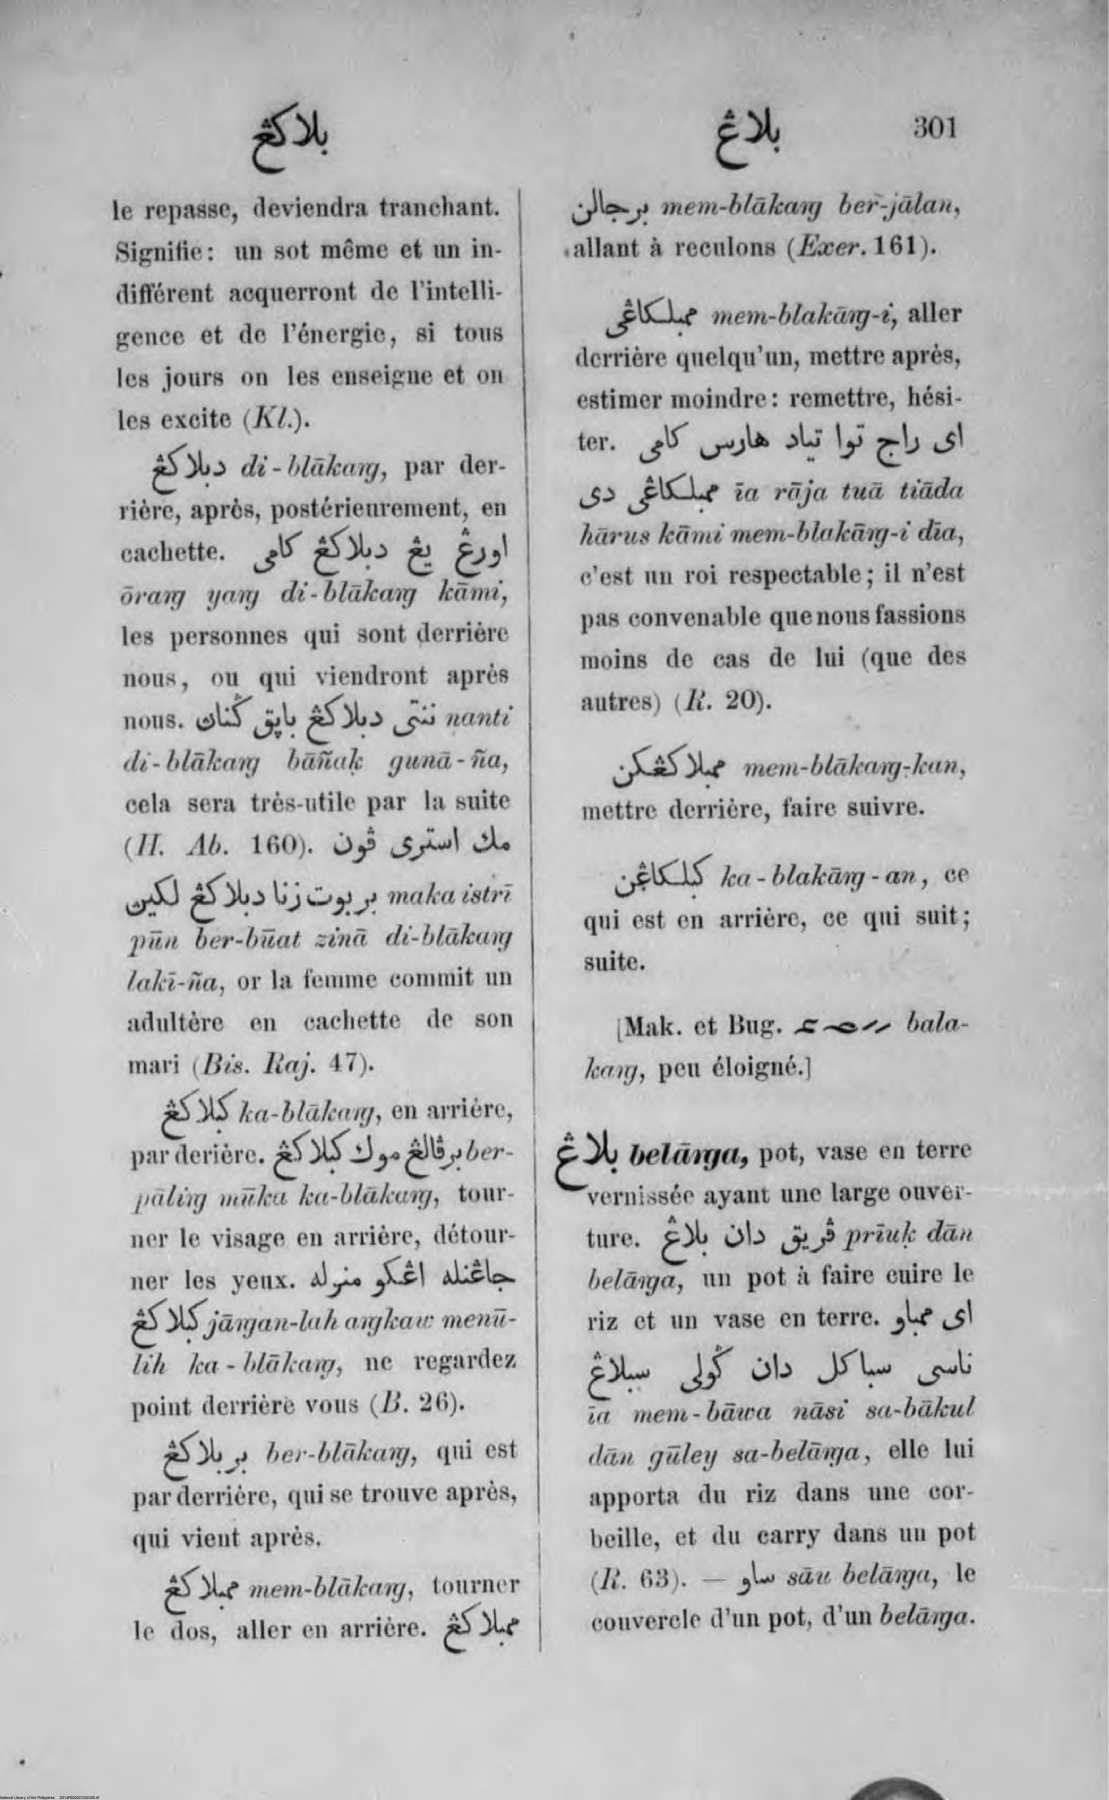 بلاكڠ
بلاڠ
301
le repasse, deviendra tranchant.
Signifie: un sot même et un in-
différent acquerront de l'intelli-
gence et de l'énergie, si tous
les jours on les enseigne et on
les excite (Kl.).
دبلاكڠ di-blākaŋ, par der-
rière, après, postérieurement, en
cachette. اورڠ يڠ دبلاكڠ كامى
ōraŋ yaŋ di-blākaŋ kāmi,
les personnes qui sont derrière
nous, ou qui viendront après
nous. ننتى دبلاكڠ باڽق ݢنان nanti
di-blākaŋ bāñaḳ gunā-ña,
cela sera très-utile par la suite
(H. Ab. 160). مك استرى ڤون
بربوت زنا دبلاكڠ لكين maka istrī
pūn ber-būat zinā di-blākaŋ
lakī-ña, or la femme commit un
adultère en cachette de son
mari (Bis. Raj. 47).
كبلاكڠ ka-blākaŋ, en arrière,
par derière. برڤالڠ موك كبلاكڠ ber-
pāliŋ mūka ka-blākaŋ, tour-
ner le visage en arrière, détour-
ner les yeux. جاڠنله اڠكو منوله
كبلاكڠ jāŋan-lah aŋkaw menū-
lih ka-blākaŋ, ne regardez
point derrière vous (B. 26).
بربلاكڠ ber-blākaŋ, qui est
par derrière, qui se trouve après,
qui vient après.
ممبلاكڠ mem-blākaŋ, tourner
le dos, aller en arrière. ممبلاكڠ
برجالن mem-blākaŋ ber-jālan,
allant à reculons (Exer. 161).
ممبلكاڠى mem-blakāŋ-i, aller
derrière quelqu'un, mettre après,
estimer moindre: remettre, hési-
ter. اى راج توا تياد هارس كامى
ممبلكاڠى دى īa rāja tuā tiāda
hārus kāmi mem-blakāŋ-i dīa,
c'est un roi respectable; il n'est
pas convenable que nous fassions
moins de cas de lui (que des
autres) (R. 20).
ممبلاكڠكن mem-blākaŋ-kan,
mettre derrière, faire suivre.
كبلكاڠن ka-blakāŋ-an, ce
qui est en arrière, ce qui suit;
suite.
[Mak. et Bug. bala-
kaŋ, peu éloigné.]
بلاڠ belāŋa, pot, vase en terre
vernissée ayant une large ouver-
ture. ڤريق دان بلاڠ prīuḳ dān
belāŋa, un pot à faire cuire le
riz et un vase en terre. اى ممباو
ناسى سباكل دان ݢولى سبلاڠ
īa mem-bāwa nāsi sa-bākul
dān gūley sa-belāŋa, elle lui
apporta du riz dans une cor-
beille, et du carry dans un pot
(R. 63). — ساو sāu belāŋa, le
couvercle d'un pot, d'un belāŋa.